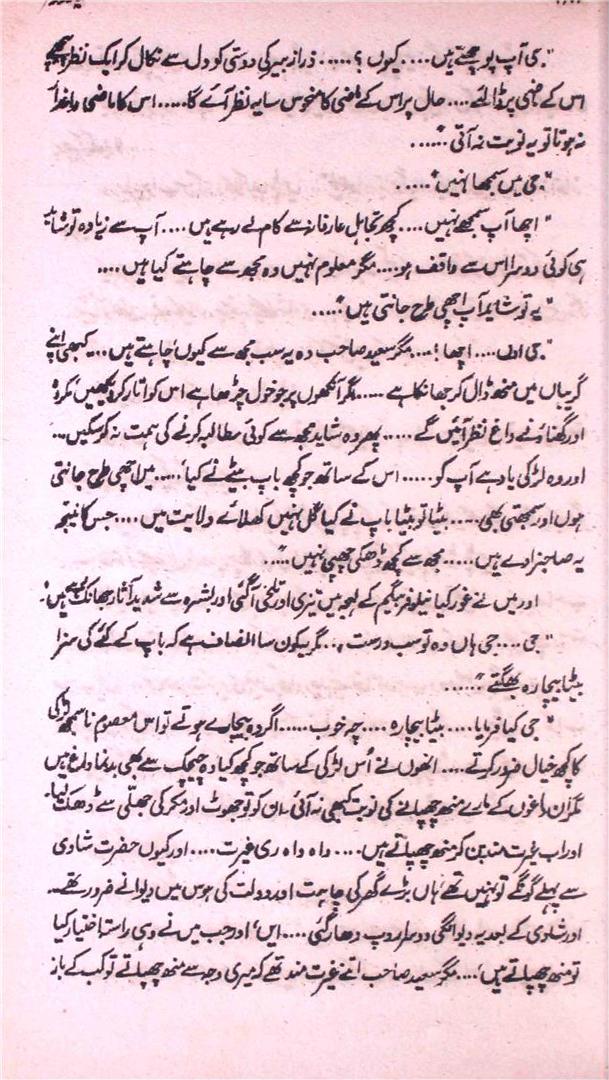 "جی آپ پوچھتے ہیں.... کیوں ؟..... ذرا زبیر کی دوستی کو دل سے نکال کر ایک نظر
اس کے ماضی پر ڈالئے.... حال پر اس کے ماضی کا منحوس سایہ نظر آئے گا..... اس کا ماضی داغدار
نہ ہوتا تو یہ نوبت نہ آتی"......
"جی میں سمجھا نہیں".....
"اچھا آپ سمجھے نہیں.... کچھ تجاہل عارفانہ سے کام لے رہے ہیں.... آپ سے زیادہ تو شاید
ہی کوئی دوسرا اس سے واقف ہو.... مگر معلوم نہیں وہ مجھ سے چاہتے کیا ہیں....
"یہ تو شاید آپ اچھی طرح جانتی ہیں".....
"جی اوں.... اچھا !... مگر سعید صاحب وہ یہ سب مجھ سے کیوں چاہتے ہیں... کبھی اپنے
گریباں میں منھ ڈال کر جھانکا ہے..... مگر آنکھوں پر جو خول چڑھا ہے اس کو اتار کر دیکھیں، مکروہ
اور گھناؤنے داغ نظر آئیں گے..... پھر وہ شاید مجھ سے کوئی مطالبہ کرنے کی ہمت نہ کر سکیں...
اور وہ لڑکی یاد ہے آپ کو..... اس کے ساتھ جو کچھ باپ بیٹے نے کیا..... میں اچھی طرح جانتی
ہوں اور سمجھتی بھی..... بیٹا تو بیٹا باپ نے کیا گل نہیں کھلائے ولایت میں.... جس کا نتیجہ
یہ صاحبزادے ہیں..... مجھ سے کچھ ڈھکی چھپی نہیں"....
اور میں نے غور کیا نیلوفر بیگم کے لہجہ میں تیزی اور تلخی آ گئی اور بشرہ سے شدید آثار جھانک رہے ہیں۔
"جی.... جی ہاں وہ تو سب درست ... مگر یہ کون سا انصاف ہے کہ باپ کے کئے کی سزا
بیٹا بیچارہ بھگتے"......
"جی کیا فرمایا.... بیٹا بیچارہ.... چہ خوب..... اگر وہ بیچارے ہوتے تو اس معصوم ناسمجھ لڑکی
کا کچھ خیال ضرور کرتے.... انھوں نے اُس لڑکی کے ساتھ جو کچھ کیا وہ چیچک سے بھی بدنما داغ ہیں
مگر ان داغوں کے مارے منھ چھپانے کی نوبت کبھی نہ آئی۔ ان کو تو جھوٹ اور مکر کی جھلّی سے ڈھک لیا۔
اور اب غیرت مند بن کر منھ چھپاتے ہیں.... واہ واہ ری غیرت.... اور کیوں حضرت شادی
سے پہلے گونگے تو نہیں تھے ہاں بڑے گھر کی چاہت اور دولت کی ہوس میں دیوانے ضرور تھے...
اور شادی کے بعد یہ دیوانگی دوسرا روپ دھار گئی.... ایں' اور جب میں نے وہی راستہ اختیار کیا
تو منھ چھپاتے ہیں'.... مگر سعید صاحب اتنے غیرت مند تھے کہ میری وجہ سے منھ چھپاتے تو کب کے باز